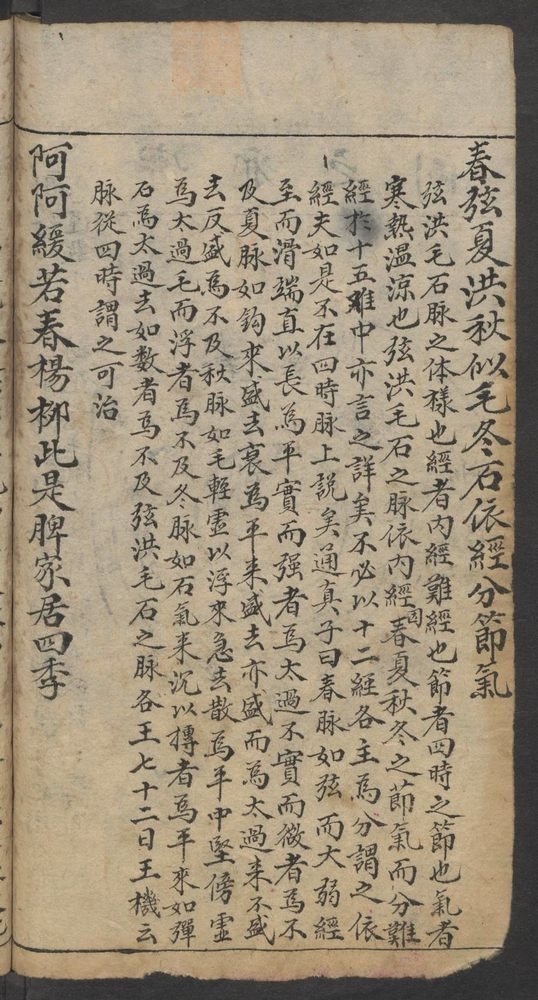 春弦夏洪秋似毛冬石依經分節氣
弦洪毛石脉之体樣也經者内經難經也節者四時之節也氣者
寒熱温凉也弦洪毛石之脉依内經春夏秋冬之節氣而分難
經於十五难中亦言之詳矣不必以十二經各主為分謂之依
經夫如是不在四時脉上説矣通真子曰春脉如弦而大弱經
至而滑端直以長為平實而强者為太過不實而微者為不
及夏脉如鈎來盛去衰為平来盛去亦盛而為太過来不盛
去反盛為不及秋脉如毛輕虚以浮來急去散為平中堅傍虚
為太過毛而浮者為不及冬脉如石氣来沉以摶者為平來如彈
石為太過去如数者為不及弦洪毛石之脉各王七十二日王機云
脉從四時謂之可治
阿阿緩若春楊柳此是脾家居四季